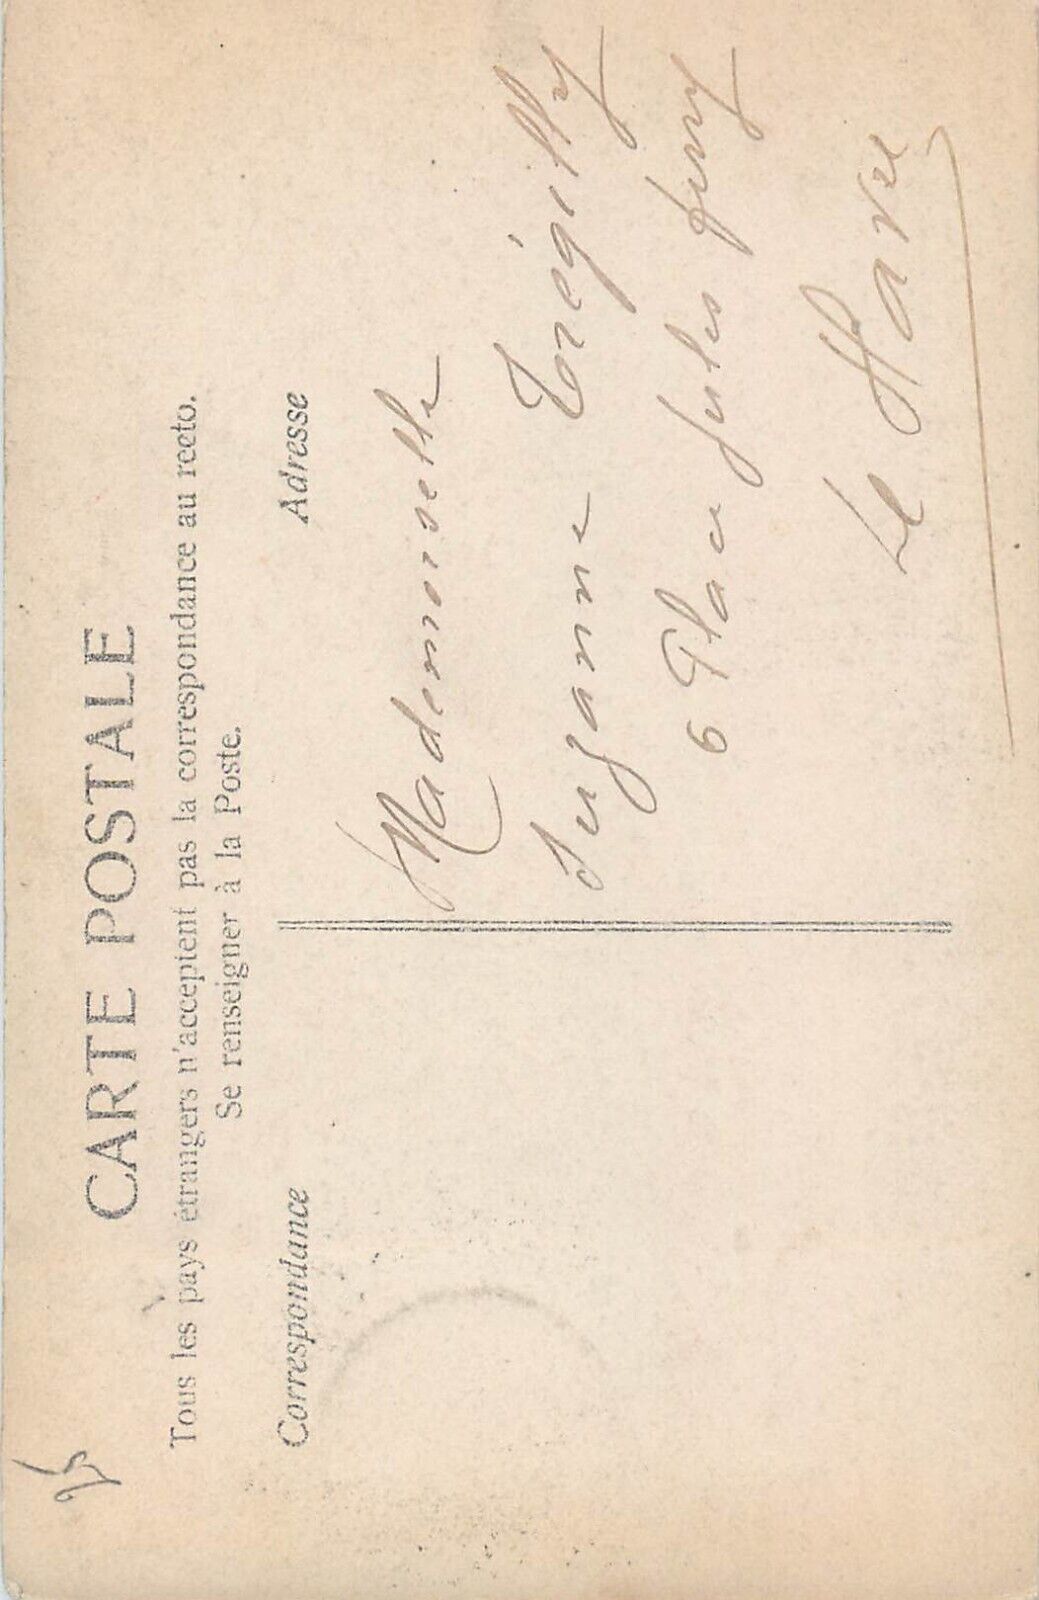 CARTE POSTALE
Tous les pays étrangers n'acceptent pas la correspondance au recto.
Se renseigner à la Poste.
Correspondance
Adresse
Mademoiselle
Suzanne Trégilly
6 Place Jules ferry
Le Havre